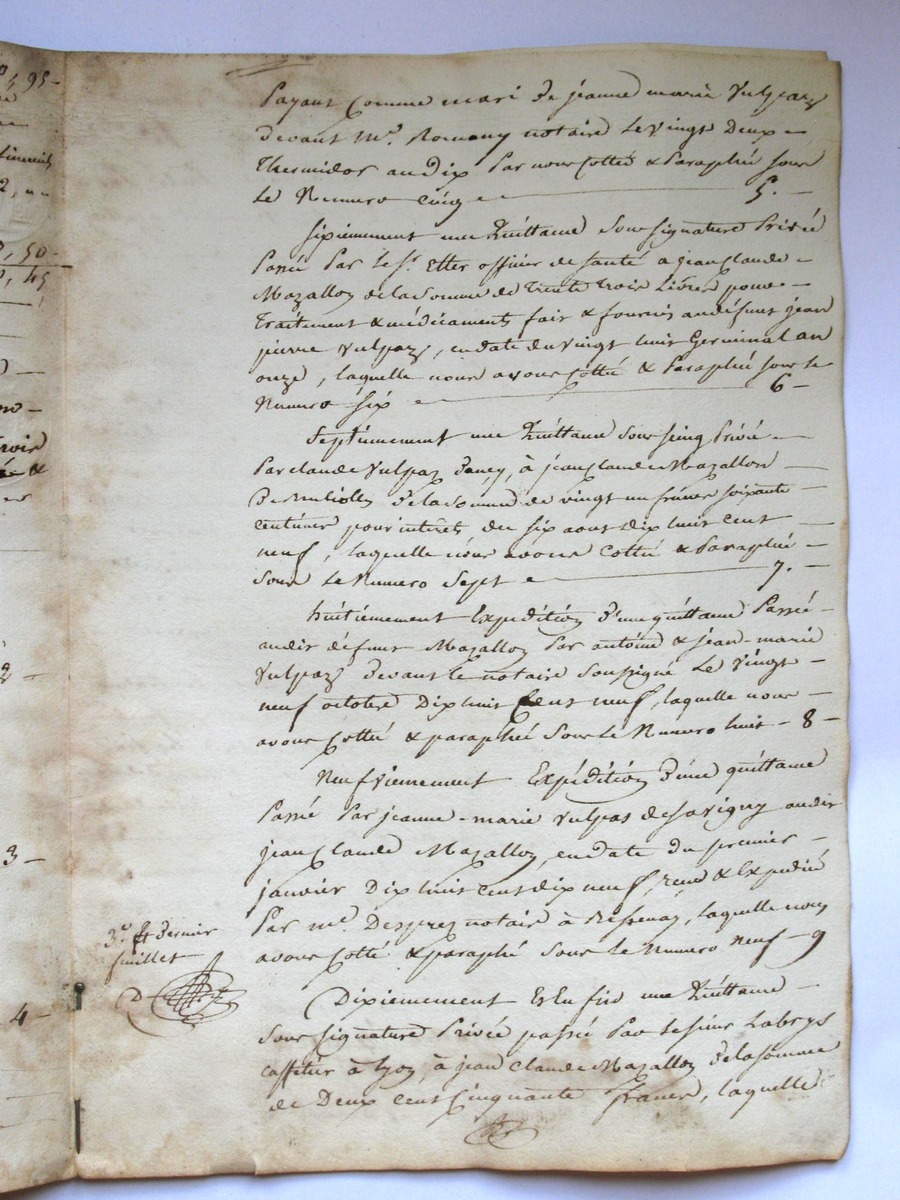 0, 95 -
2, "
0, 50 -
0, 45
2 -
3 -
4 -
payant Comme mari De jeanne marie Vulpaz
devant Me. Romany notaire Le vingt Deux -
Thermidor an Dix par nous Cotté & Paraphé sous
Le Numero Cinq - 5. -
Sixiemement une Quittance Sous signature Privée
Passé Par Le Sr. Etter officier de santé a jean Claude -
Mazallon de la Somme de Trente Trois Livres pour -
Traitement & médicaments fait & fournis au défunt jean
pierre Vulpaz, en date du vingt huit Germinal an
onze, laquelle nous avons Cotté & Paraphé sous le
Numero Six - 6 -
Septiemement une Quittance Sous seing Privé -
Par claude Vulpaz à jean Claude Mazallon -
De la Somme de vingt un francs soixante -
centimes pour intérêts du six aout dix huit cent -
neuf, laquelle nous avons Cotté & Paraphé -
Sous Le Numero Sept - 7. -
huitiemement Expedition d'une quittance Passé -
au dit défunt Mazallon Par antoine & jean-marie
Vulpaz Devant le notaire Soussigné Le Vingt -
neuf octobre Dix huit Cent neuf, laquelle nous -
avons Cotté & paraphé Sous Le Numero huit - 8 -
Neufviemement Expédition d'une quittance
Passé Par jeanne-marie Vulpas de Savigny au dit
jean Claude Mazallon, en date du premier -
janvier Dix huit cent dix neuf, & Expedié
Par me. Desprez notaire à Bessenay, laquelle nous
avons Cotté & paraphé Sous Le Numero neuf - 9
3e. Et dernier
feuillet
Dixiemement Et En fin une Quittance -
Sous signature Privée passée Par Le sieur Labrys
caffetier à Lyon, à jean Claude Mazallon De la somme
de Deux cent cinquante francs, laquelle